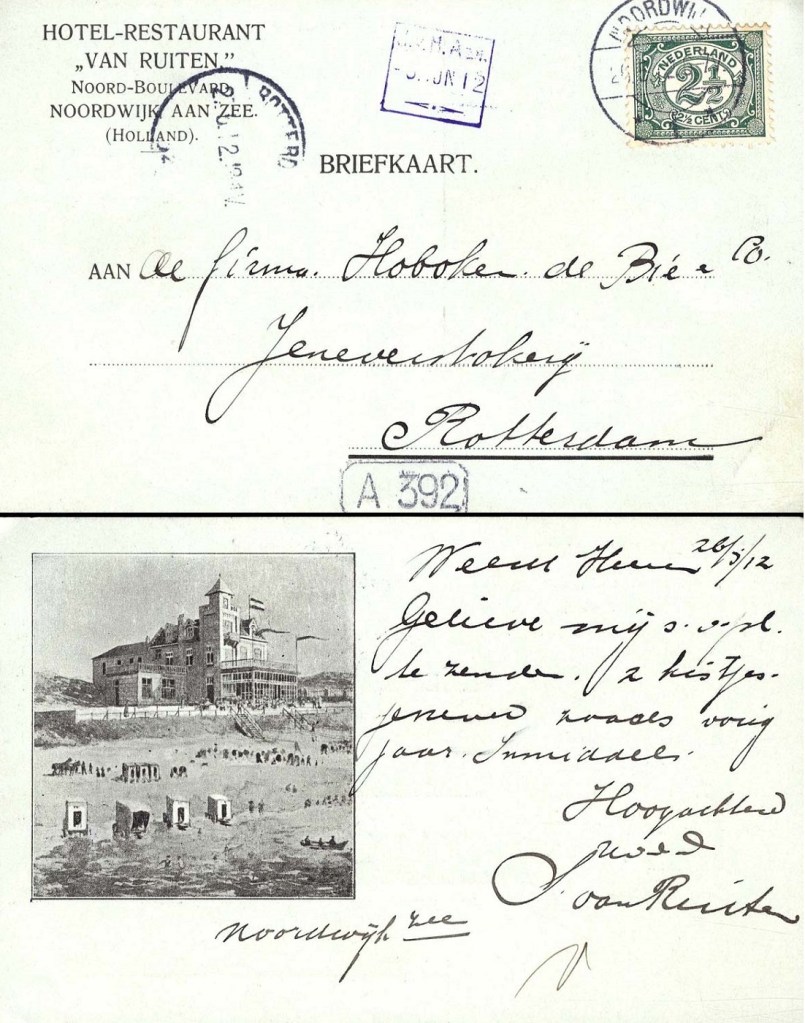 HOTEL-RESTAURANT
„VAN RUITEN,”
NOORD-BOULEVARD
NOORDWIJK AAN ZEE.
(HOLLAND).
NOORDWIJ
NEDERLAND
2½
(2½ CENT)
JUN 12
ROTTERD
BRIEFKAART.
AAN De firma. Hoboken de Bie & Co.
Jeneverstokerij
Rotterdam
A 392
26/5/12
Weled Heer
Gelieve mij s.v.pl.
te zenden. 2 kistjes
jenever zooals vorig
jaar. Inmiddels.
Hoogachtend
S van Ruiten
Noordwijk zee